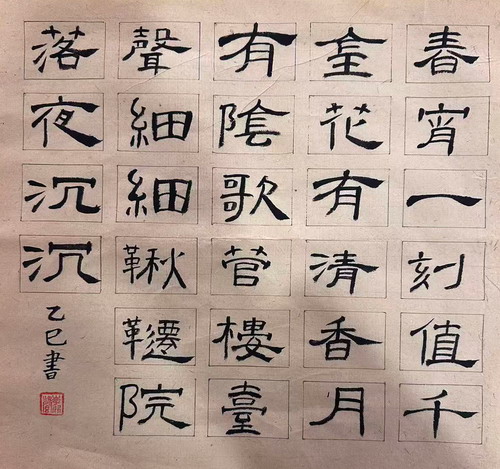 春宵一刻值千
金花有清香月
有陰歌管樓臺
聲細細鞦韆院
落夜沉沉
乙巳書